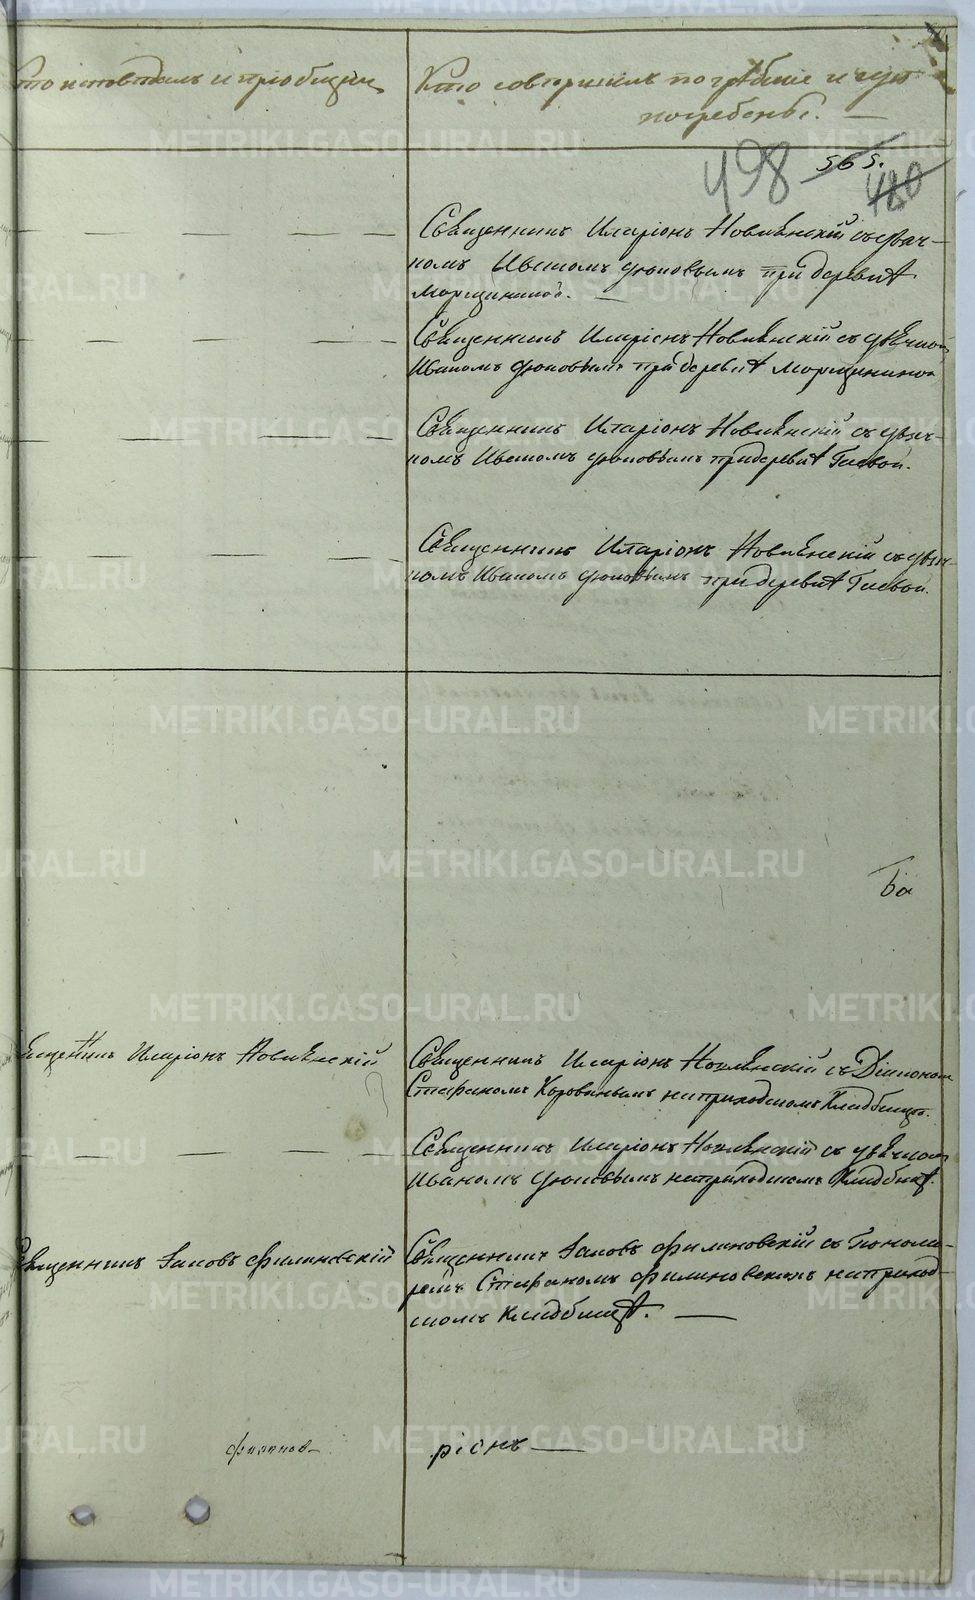 Кто исповѣдалъ и пріобщилъ
Кто совершилъ погребеніе и гдѣ
погребены.
498 565. 480
Священникъ Иларіонъ Новлянскій съ дьяч-
комъ Иваномъ Дюковымъ при деревнѣ
Морщининой.
Священникъ Иларіонъ Новлянскій съ дьячкомъ
Иваномъ Дюковымъ при деревнѣ Морщининой
Священникъ Иларіонъ Новлянскій съ дьяч-
комъ Иваномъ Дюковымъ при деревнѣ Гаевой.
Священникъ Иларіонъ Новлянскій съ дьяч-
комъ Иваномъ Дюковымъ при деревнѣ Гаевой.
Священникъ Иларіонъ Новлянскій
Священникъ Иларіонъ Новлянскій съ Діакономъ
Стефаномъ Коровинымъ на приходскомъ Кладбищѣ.
Священникъ Иларіонъ Новлянскій съ дьячкомъ
Иваномъ Дюковымъ на приходскомъ Кладбищѣ.
Священникъ Іаковъ Филиновскій
Священникъ Іаковъ Филиновскій съ Понома-
ремъ Стефаномъ Филиновскимъ на приход-
скомъ кладбищѣ.
ріонъ
METRIKI.GASO-URAL.RU